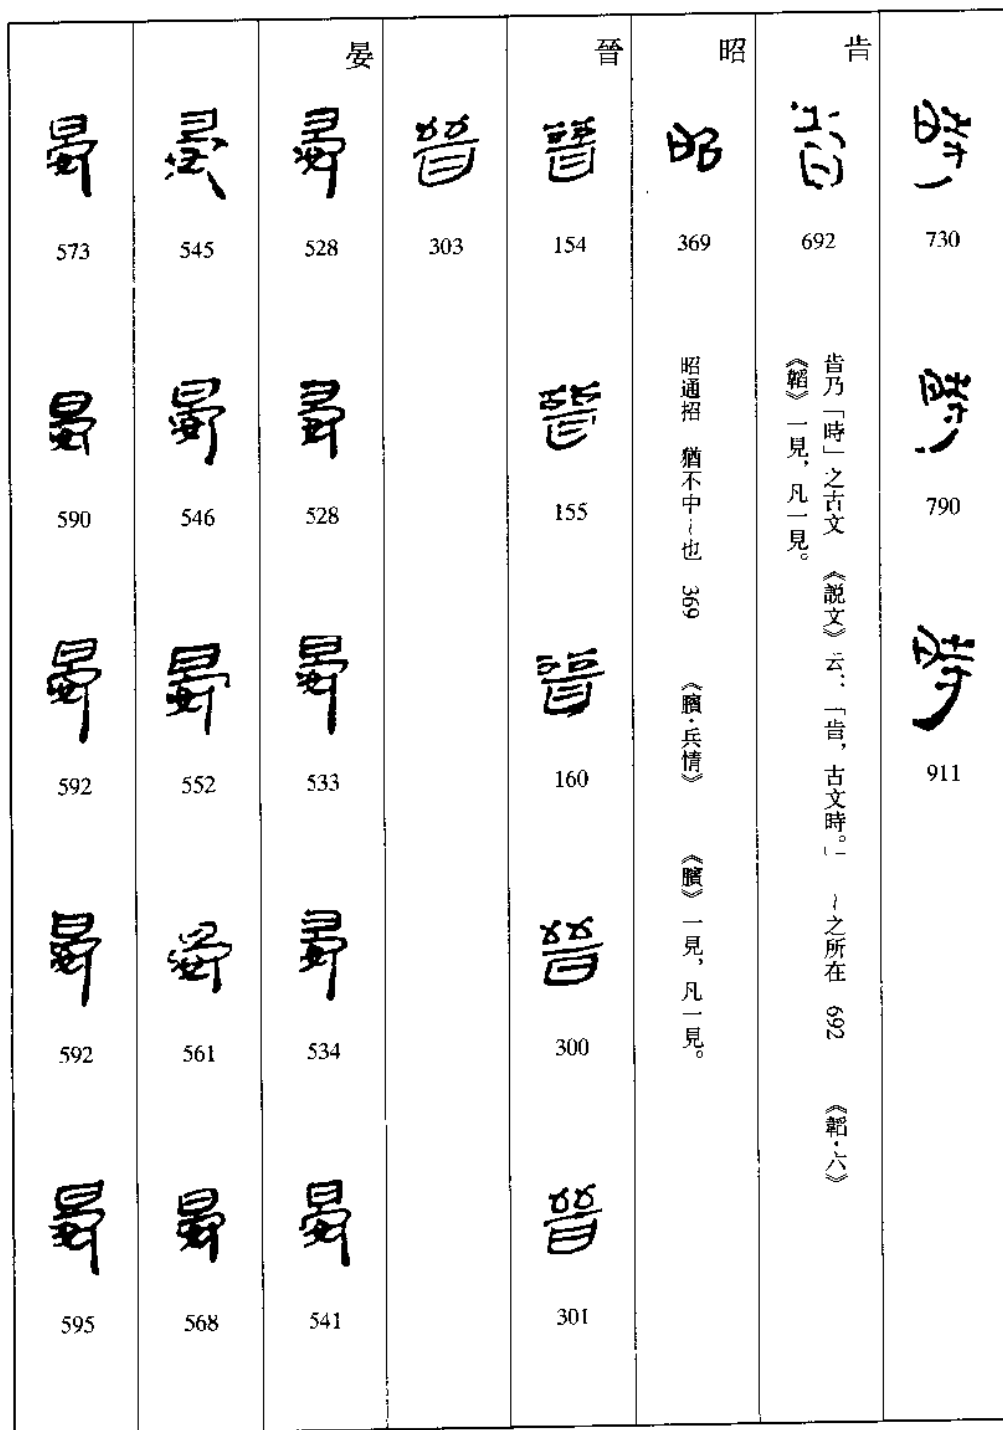 時 730 時 790 時 911
旹
旹 692
旹乃「時」之古文 《説文》云:「旹,古文時。」 ~之所在 692 《韜·六》
《韜》一見,凡一見。
昭
昭 369
昭通招 猶不中~也 369 《臏·兵情》 《臏》一見,凡一見。
晉
晉 154 晉 155 晉 160 晉 300 晉 301
晉 303
晏
晏 528 晏 528 晏 533 晏 534 晏 541
晏 545 晏 546 晏 552 晏 561 晏 568
晏 573 晏 590 晏 592 晏 592 晏 595